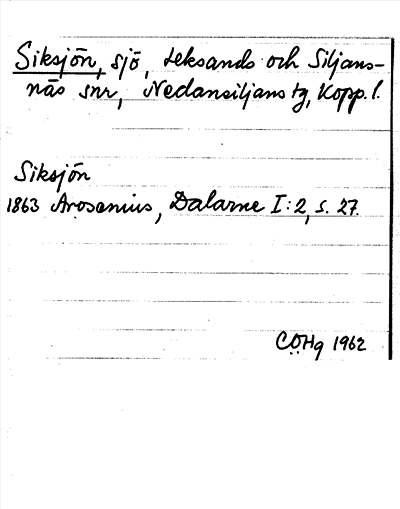 Siksjön, sjö, Leksands och Siljans-
näs snr, Nedansiljans tg, Kopp. l.
Siksjön
1863 Arosenius, Dalarne I:2, s. 27.
CÖHg 1962